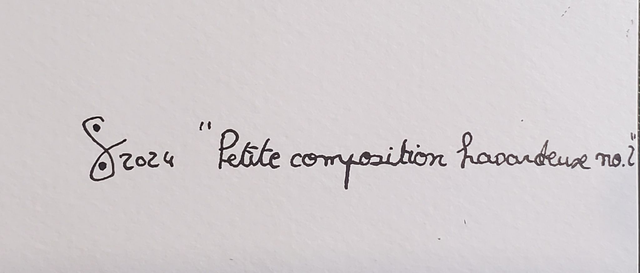 2024 "Petite composition hasardeuse no.2"